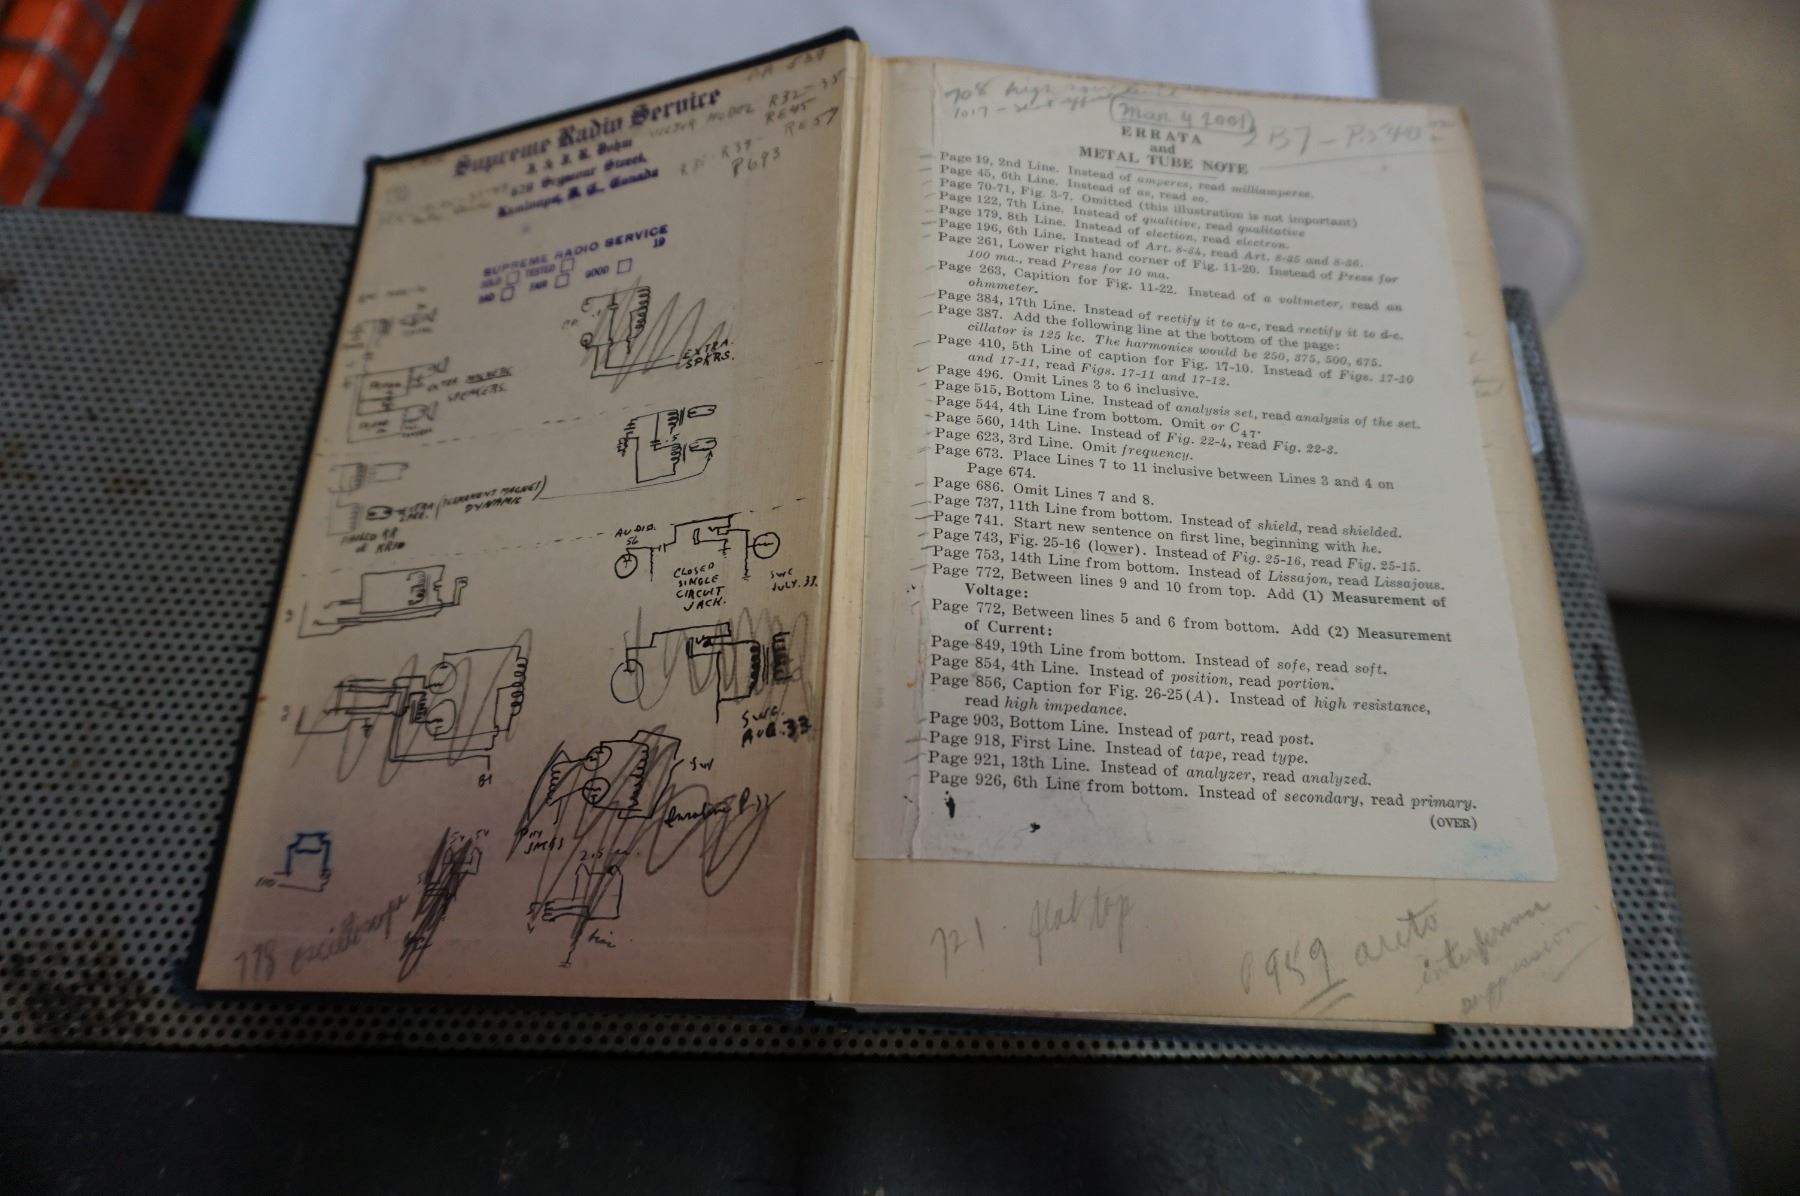 Supreme Radio Service
Seymour Street,
B. C., Canada
VICTOR MODEL R32-
RE45
RE57
R35-R39-
P693
SUPREME RADIO SERVICE
19
SOLD TESTED GOOD
BAD FAIR
EXTRA.
SPKRS.
EXTRA MAGNETIC
SPEAKERS.
(PERMANENT MAGNET)
DYNAMIC
AUDIO.
56
CLOSED
SINGLE
CIRCUIT
JACK.
SWC
JULY.33.
SWC.
AUG.33
PIN
JACKS
2.5
778 oscilloscope
708 high
1017-
Mar. 4 2001
2B7-P.540
ERRATA
and
METAL TUBE NOTE
Page 19, 2nd Line. Instead of amperes, read milliamperes.
Page 45, 6th Line. Instead of as, read so.
Page 70-71, Fig. 3-7. Omitted (this illustration is not important)
Page 122, 7th Line. Instead of qualitive, read qualitative
Page 179, 8th Line. Instead of election, read electron.
Page 196, 6th Line. Instead of Art. 8-34, read Art. 8-35 and 8-36.
Page 261, Lower right hand corner of Fig. 11-20. Instead of Press for
100 ma., read Press for 10 ma.
Page 263, Capition for Fig. 11-22. Instead of a voltmeter, read an
ohmmeter.
Page 384, 17th Line. Instead of rectify it to a-c, read rectify it to d-c.
Page 387. Add the following line at the bottom of the page:
cillator is 125 kc. The harmonics would be 250, 375, 500, 675.
Page 410, 5th Line of caption for Fig. 17-10. Instead of Figs. 17-10
and 17-11, read Figs. 17-11 and 17-12.
Page 496. Omit Lines 3 to 6 inclusive.
Page 515, Bottom Line. Instead of analysis set, read analysis of the set.
Page 544, 4th Line from bottom. Omit or C47.
Page 560, 14th Line. Instead of Fig. 22-4, read Fig. 22-3.
Page 623, 3rd Line. Omit frequency.
Page 673. Place Lines 7 to 11 inclusive between Lines 3 and 4 on
Page 674.
Page 686. Omit Lines 7 and 8.
Page 737, 11th Line from bottom. Instead of shield, read shielded.
Page 741. Start new sentence on first line, beginning with he.
Page 743, Fig. 25-16 (lower). Instead of Fig. 25-16, read Fig. 25-15.
Page 753, 14th Line from bottom. Instead of Lissajon, read Lissajous.
Page 772, Between lines 9 and 10 from top. Add (1) Measurement of
Voltage:
Page 772, Between lines 5 and 6 from bottom. Add (2) Measurement
of Current:
Page 849, 19th Line from bottom. Instead of sofe, read soft.
Page 854, 4th Line. Instead of position, read portion.
Page 856, Caption for Fig. 26-25(A). Instead of high resistance,
read high impedance.
Page 903, Bottom Line. Instead of part, read post.
Page 918, First Line. Instead of tape, read type.
Page 921, 13th Line. Instead of analyzer, read analyzed.
Page 926, 6th Line from bottom. Instead of secondary, read primary.
(OVER)
721. flat top
P959 auto
suppression